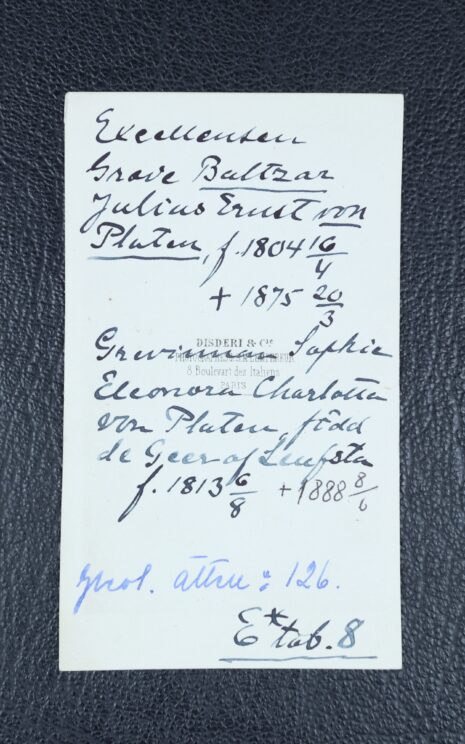 Excellensen
Greve Baltzar
Julius Ernst von
Platen, f. 1804 16/4
+ 1875 20/3
DISDERI & Cie
Grevinnan Sophie
8 Boulevart des Italiens
PARIS
Eleonora Charlotta
von Platen, född
de Geer af Leufsta
f. 1813 6/8 + 1888 8/6
ätten: 126.
E* tab. 8